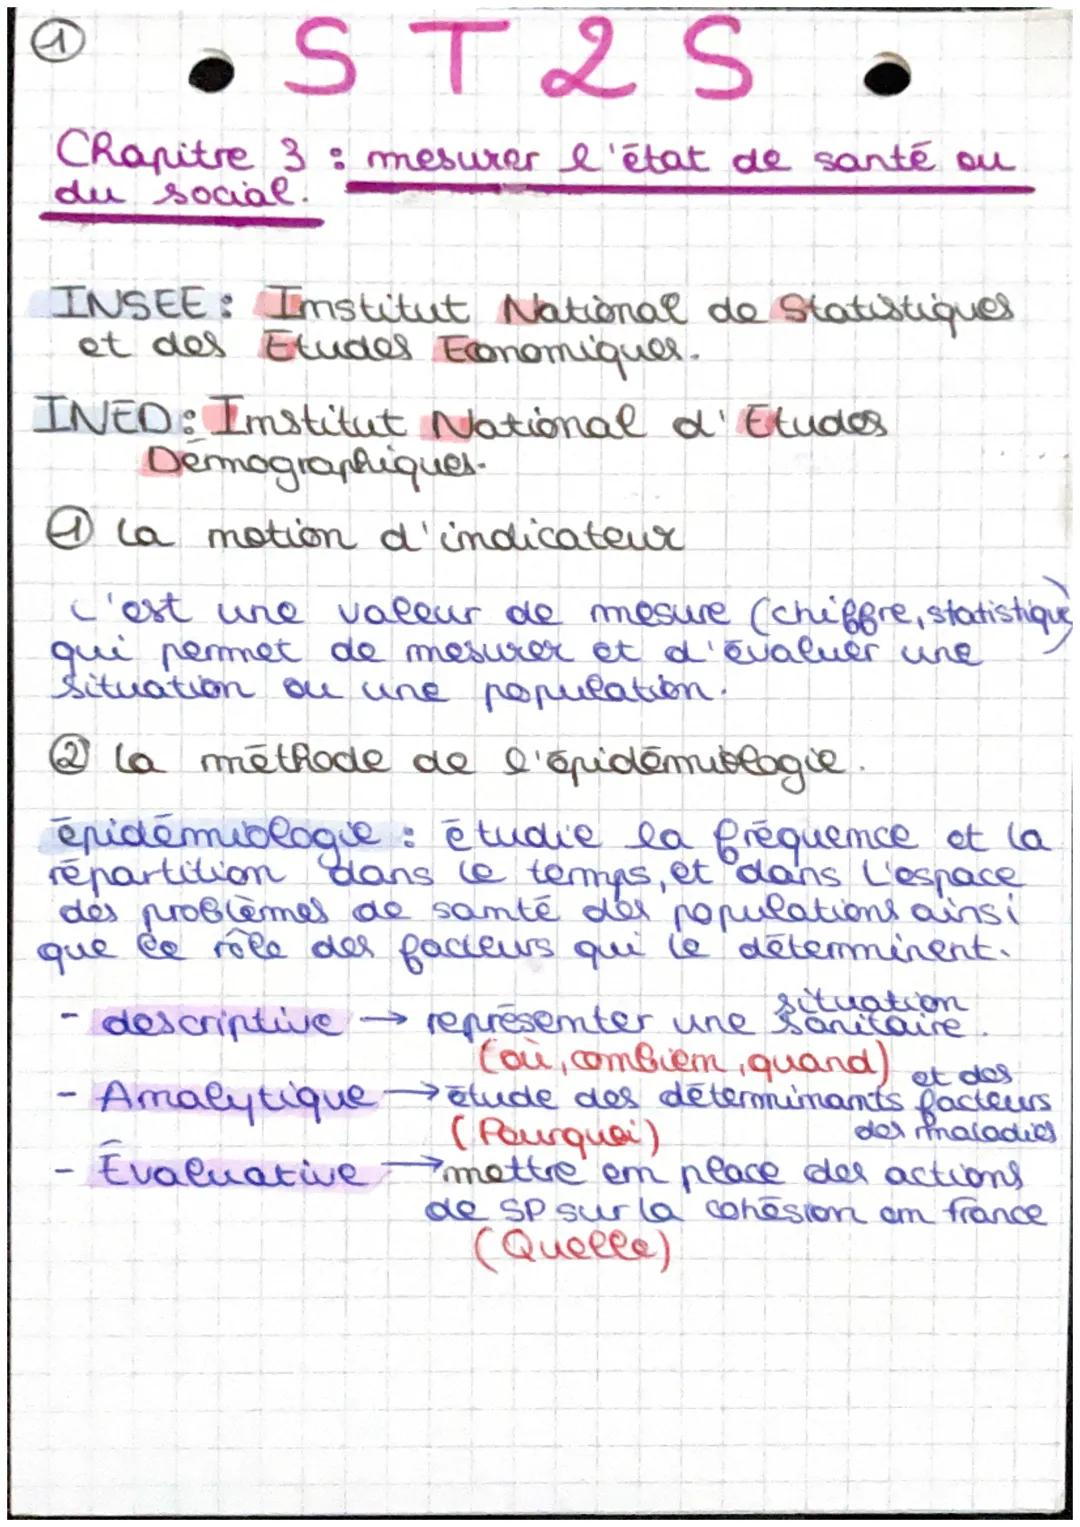 ①
• S T 2 S •
Chapitre 3 : mesurer l'état de santé ou
du social.
INSEE : Institut National de Statistiques
et des Etudes Economiques.
INED : Institut National d'Etudes
Démographiques.
① La notion d'indicateur
C'est une valeur de mesure (chiffre, statistique)
qui permet de mesurer et d'évaluer une
situation ou une population.
② La méthode de l'épidémiologie.
épidémiologie : étudie la fréquence et la
répartition dans le temps, et dans l'espace
des problèmes de santé des populations ainsi
que le rôle des facteurs qui le déterminent.
- descriptive → représenter une situation sanitaire.
(où, combien, quand)
- Analytique → étude des déterminants et des facteurs
des maladies
(Pourquoi)
- Évaluative → mettre en place des actions
de SP sur la cohésion en france
(Quelle)